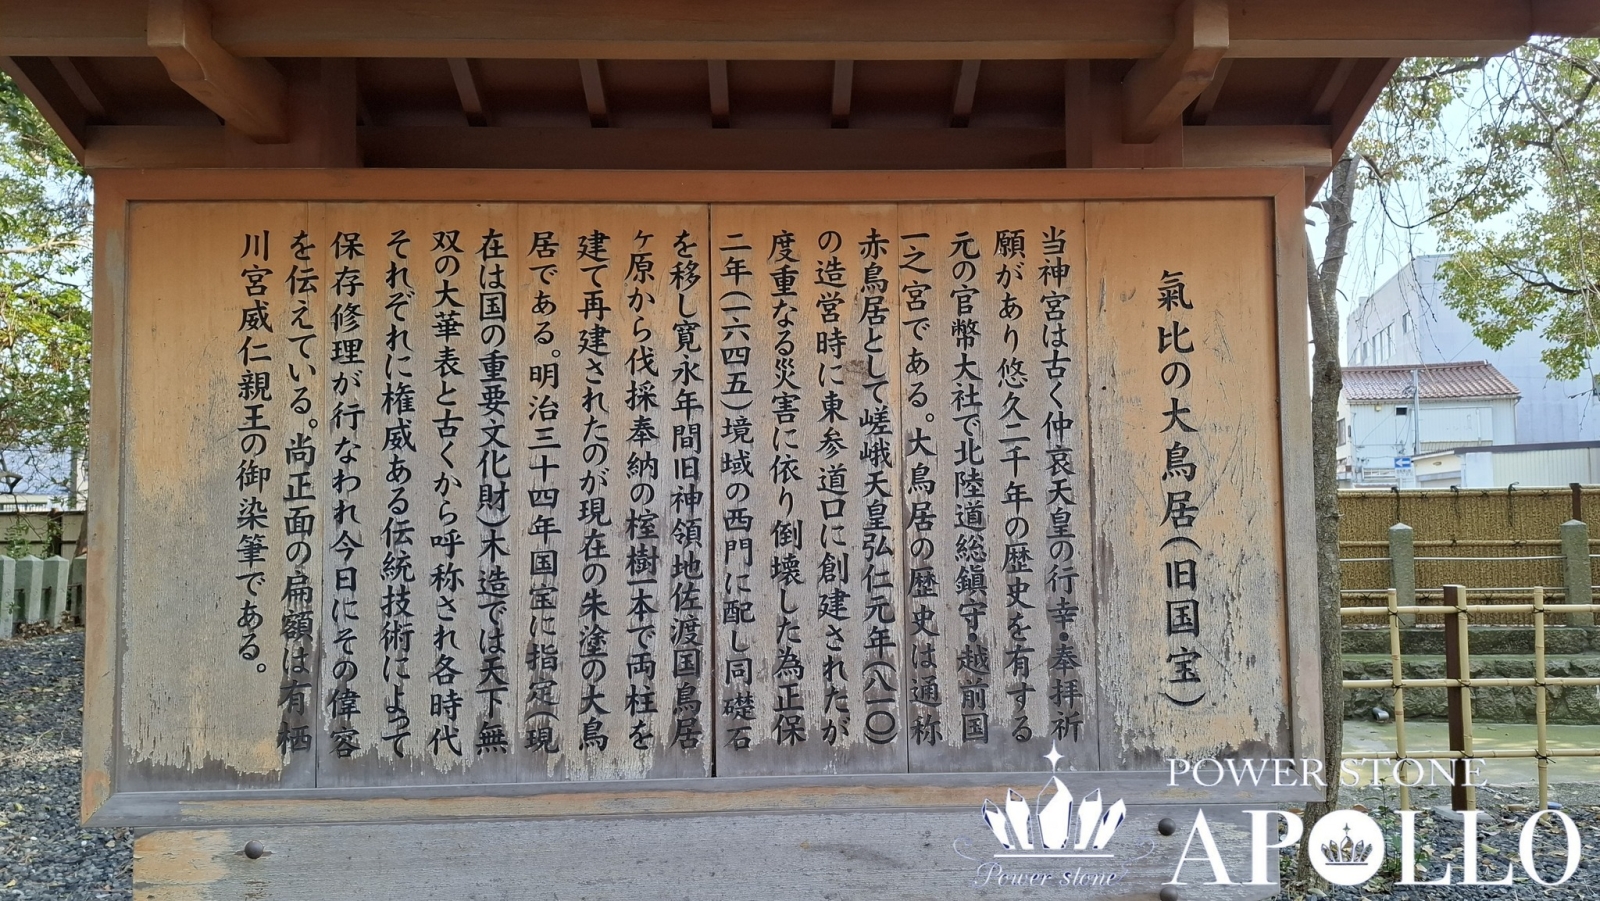 氣比の大鳥居(旧国宝)
当神宮は古く仲哀天皇の行幸・奉拝祈
願があり悠久二千年の歴史を有する
元の官幣大社で北陸道総鎮守・越前国
一之宮である。大鳥居の歴史は通称
赤鳥居として嵯峨天皇弘仁元年(八一〇)
の造営時に東参道口に創建されたが
度重なる災害に依り倒壊した為正保
二年(一六四五)境域の西門に配し同礎石
を移し寛永年間旧神領地佐渡国鳥居
ヶ原から伐採奉納の榁樹一本で両柱を
建て再建されたのが現在の朱塗の大鳥
居である。明治三十四年国宝に指定(現
在は国の重要文化財)木造では天下無
双の大華表と古くから呼称され各時代
それぞれに権威ある伝統技術によって
保存修理が行なわれ今日にその偉容
を伝えている。尚正面の扁額は有栖
川宮威仁親王の御染筆である。
POWER STONE
APOLLO
Power stone